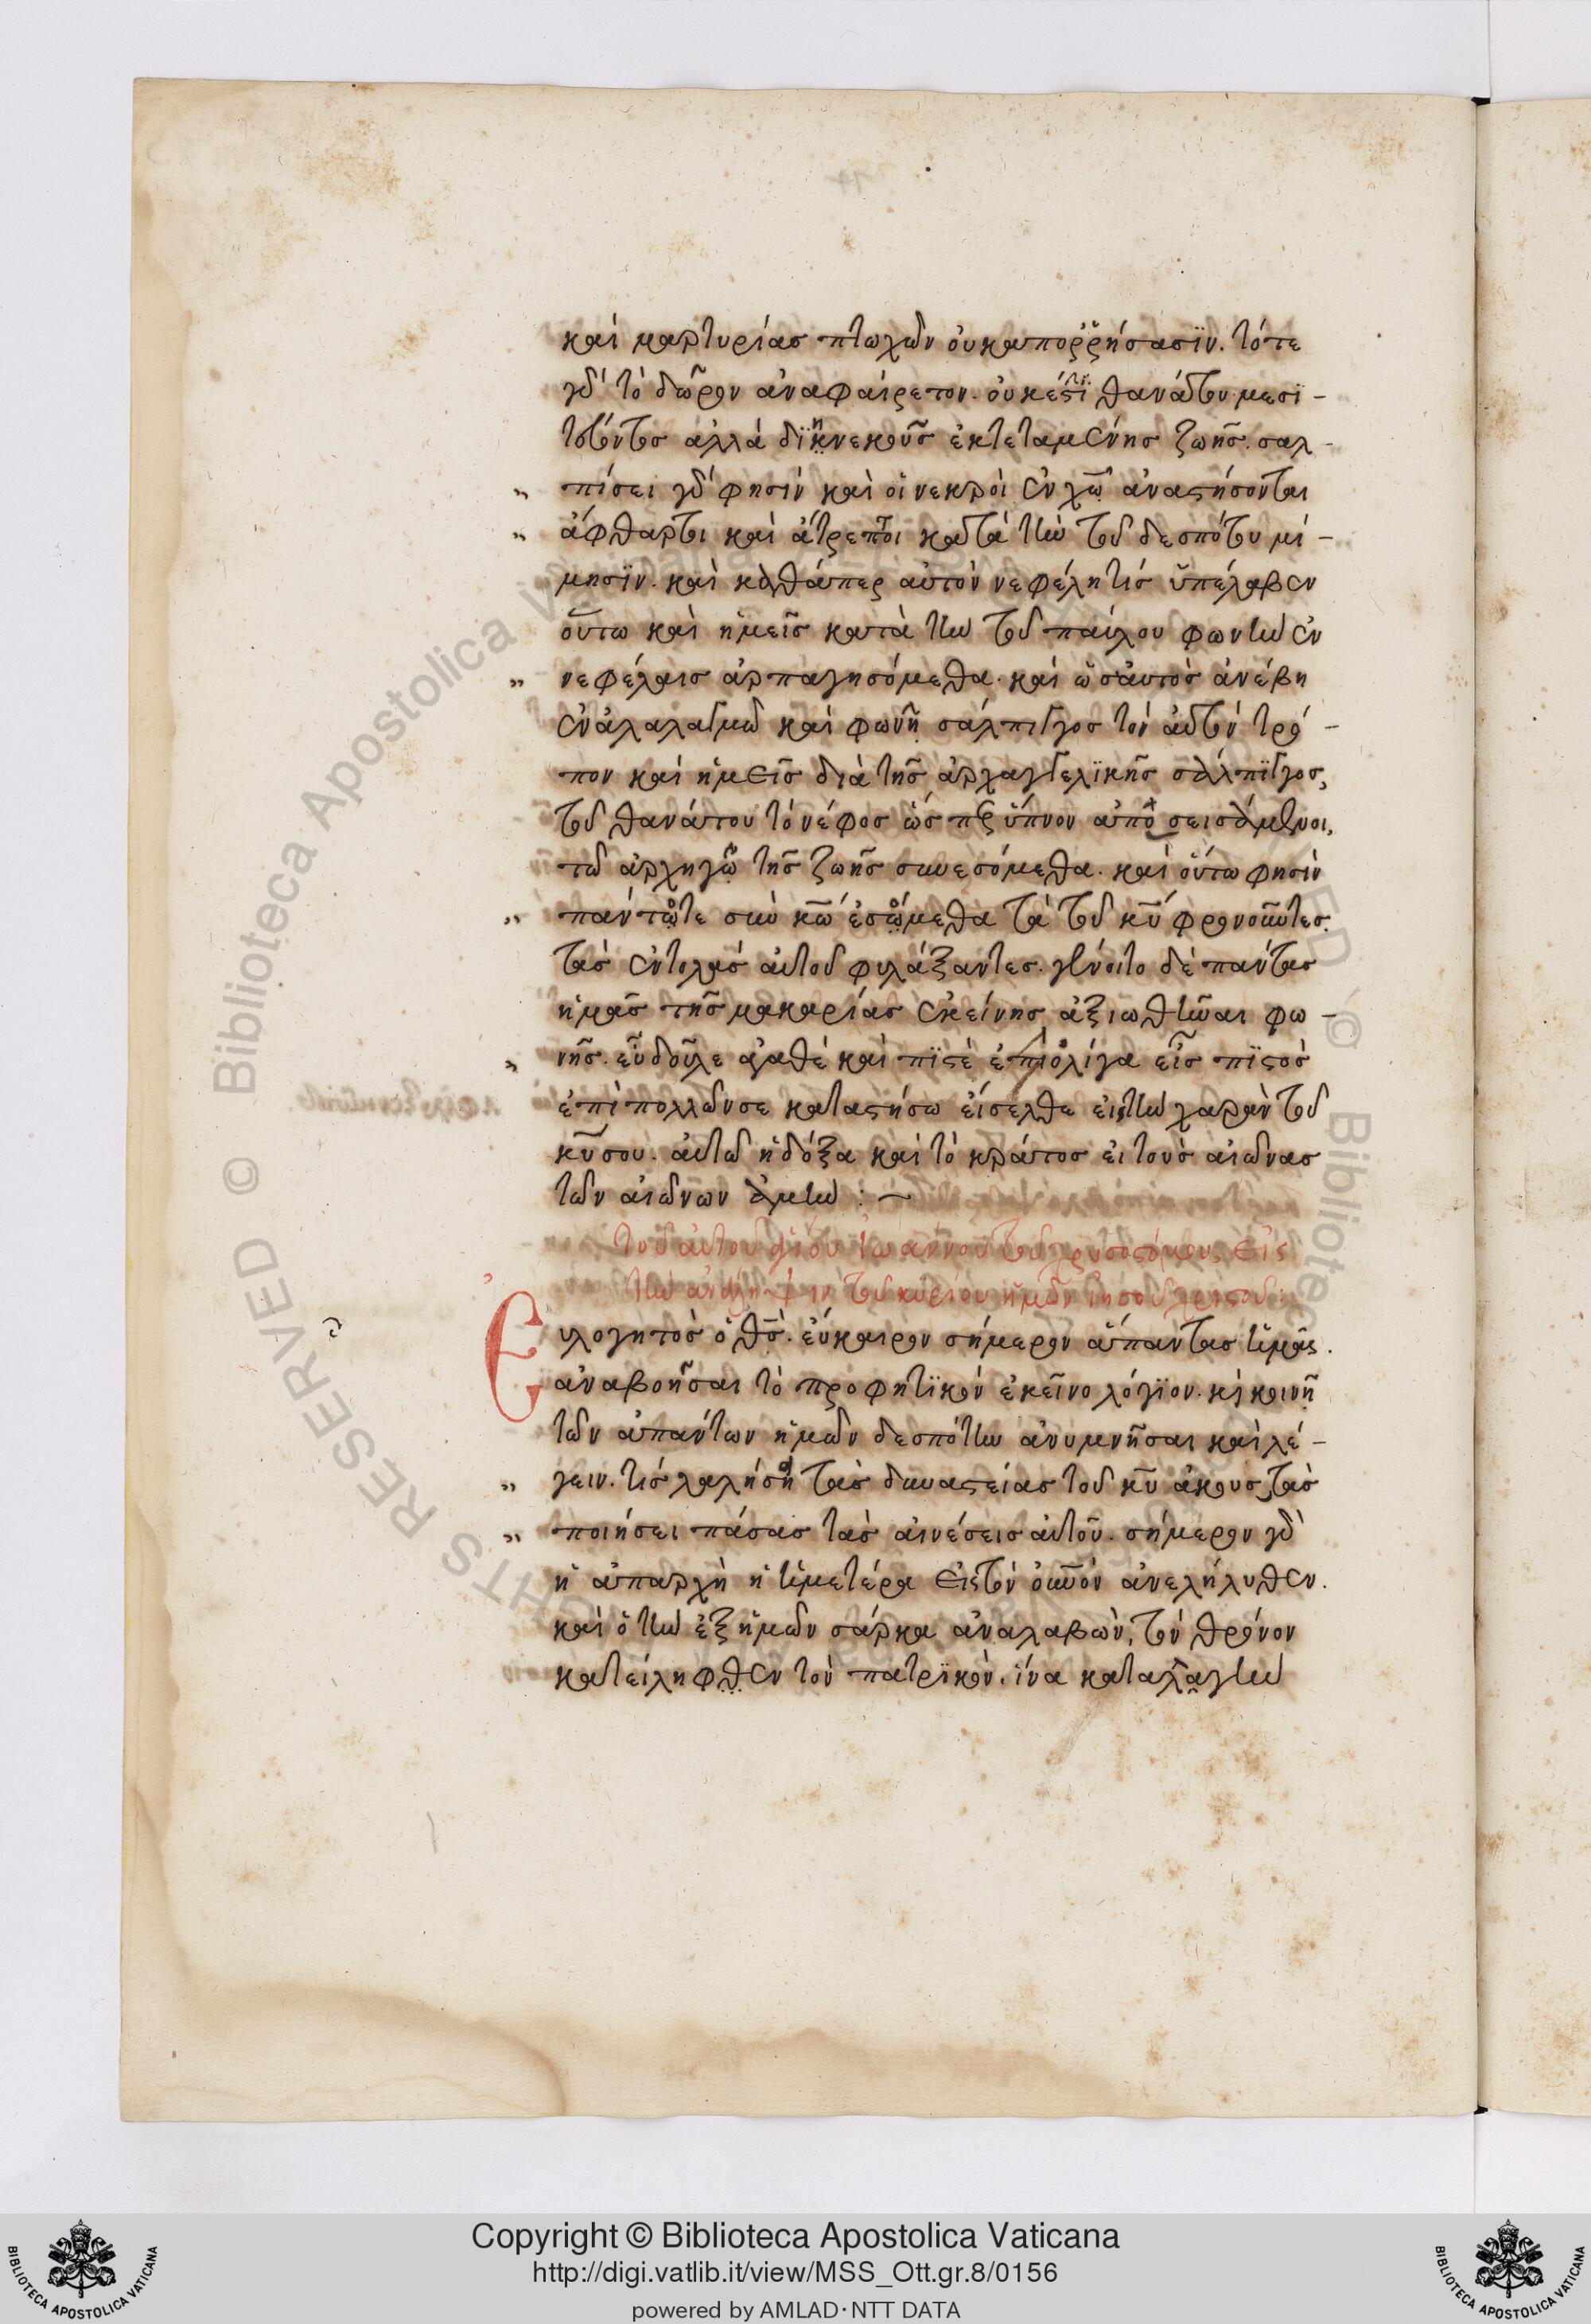 καὶ μαρτυρίας πτωχῶν οὐκ ἀπορρήσασϊν. τότε
γὰρ τὸ δῶρον ἀναφαίρετον. οὐκέτι θανάτου μεσϊ-
τεύοντος ἀλλὰ διηνεκοῦς ἐκτεταμένης ζωῆς. σαλ-
πίσει γὰρ φησὶν καὶ οἱ νεκροὶ ἐν χω ἀναστήσονται
ἄφθαρτοι καὶ ἄτρεπτοι κατὰ τὴν τοῦ δεσπότου μί-
μησϊν. καὶ καθάπερ αὐτὸν νεφέλη τίς ὑπέλαβεν
οὕτω καὶ ἡμεῖς κατὰ τὴν τοῦ παύλου φωνὴν ἐν
νεφέλαις ἁρπαγησόμεθα. καὶ ὡς αυτὸς ἀνέβη
ἐν ἀλαλαγμῶ καὶ φωνῆ σάλπιγγος τὸν αὐτὸν τρό-
πον καὶ ἡμεῖς διὰ τῆς ἀρχαγγελϊκῆς σάλπϊγγος,
τοῦ θανάτου τὸ νέφος ὡς ὕπνον ἀποσεισάμενοι,
τῶ ἀρχηγῶ τῆς ζωῆς συνεσόμεθα. καὶ οὕτω φησὶν
πάντοτε σὺν κω ἐσόμεθα τὰ τοῦ κυ φρονοῦντες.
τὰς ἐντολὰς αὐτοῦ φυλάξαντες. γένοιτο δὲ πάντας
ἡμᾶς τῆς μακαρίας ἐκείνης ἀξιωθῆναι φω-
νῆς. εὖ δοῦλε ἀγαθὲ καὶ πϊστὲ ἐπὶ ὀλίγα εἶς πϊστὸς
ἐπὶ πολλῶν σε καταστήσω εἴσελθε εἰς τὴν χαρὰν τοῦ
κυ σου. αὐτῶ ἡ δόξα καὶ τὸ κράτος εἰ τοὺς αἰῶνας
τῶν αἰώνων ἀμήν : ~
τοῦ αὐτοῦ ἁγίου ἰωάννου τοῦ χρυσοστόμου, εἰς
τὴν ἀνάληψιν τοῦ κυρίου ἡμῶν ἰησοῦ χριστοῦ :
Εὐλογητὸς ὁ θς. εὔκαιρον σήμερον ἅπαντας ὑμᾶς.
ἀναβοῆσαι τὸ προφητϊκὸν ἐκεῖνο λόγϊον. κὶ κοινῆ
τῶν ἁπάντων ἡμῶν δεσπότην ἀνυμνῆσαι καὶ λέ-
γειν. τίς λαλήση τὰς δυναστείας τοῦ κυ ἀκουστὰς
ποιήσει πάσας τὰς αἰνέσεις αὐτοῦ. σήμερον γὰρ
ἡ ἀπαρχὴ ἡ ὑμετέρα εἰς τὸν οὐνὸν ἀνελήλυθεν.
καὶ ὁ τὴν ἐξ ἡμῶν σάρκα ἀναλαβὼν, τὸν θρόνον
κατείληφθεν τὸν πατρϊκὸν. ἵνα καταλλαγὴν